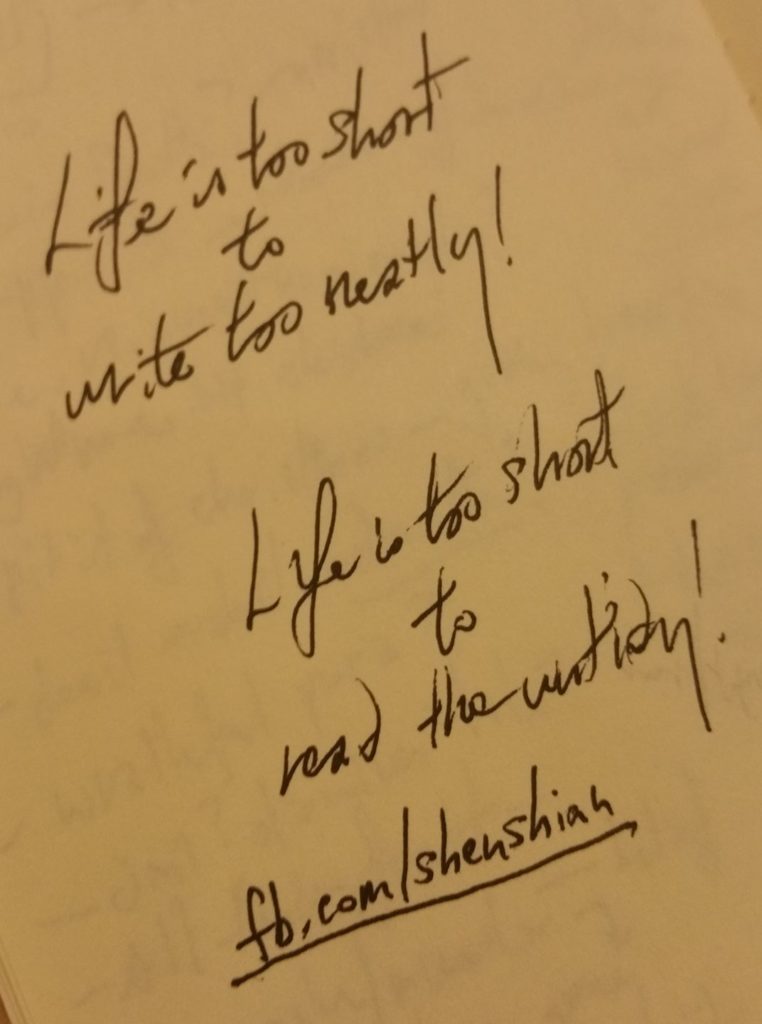 Life is too short
to
write too neatly!
Life is too short
to
read the untidy!
fb.com/shenshian